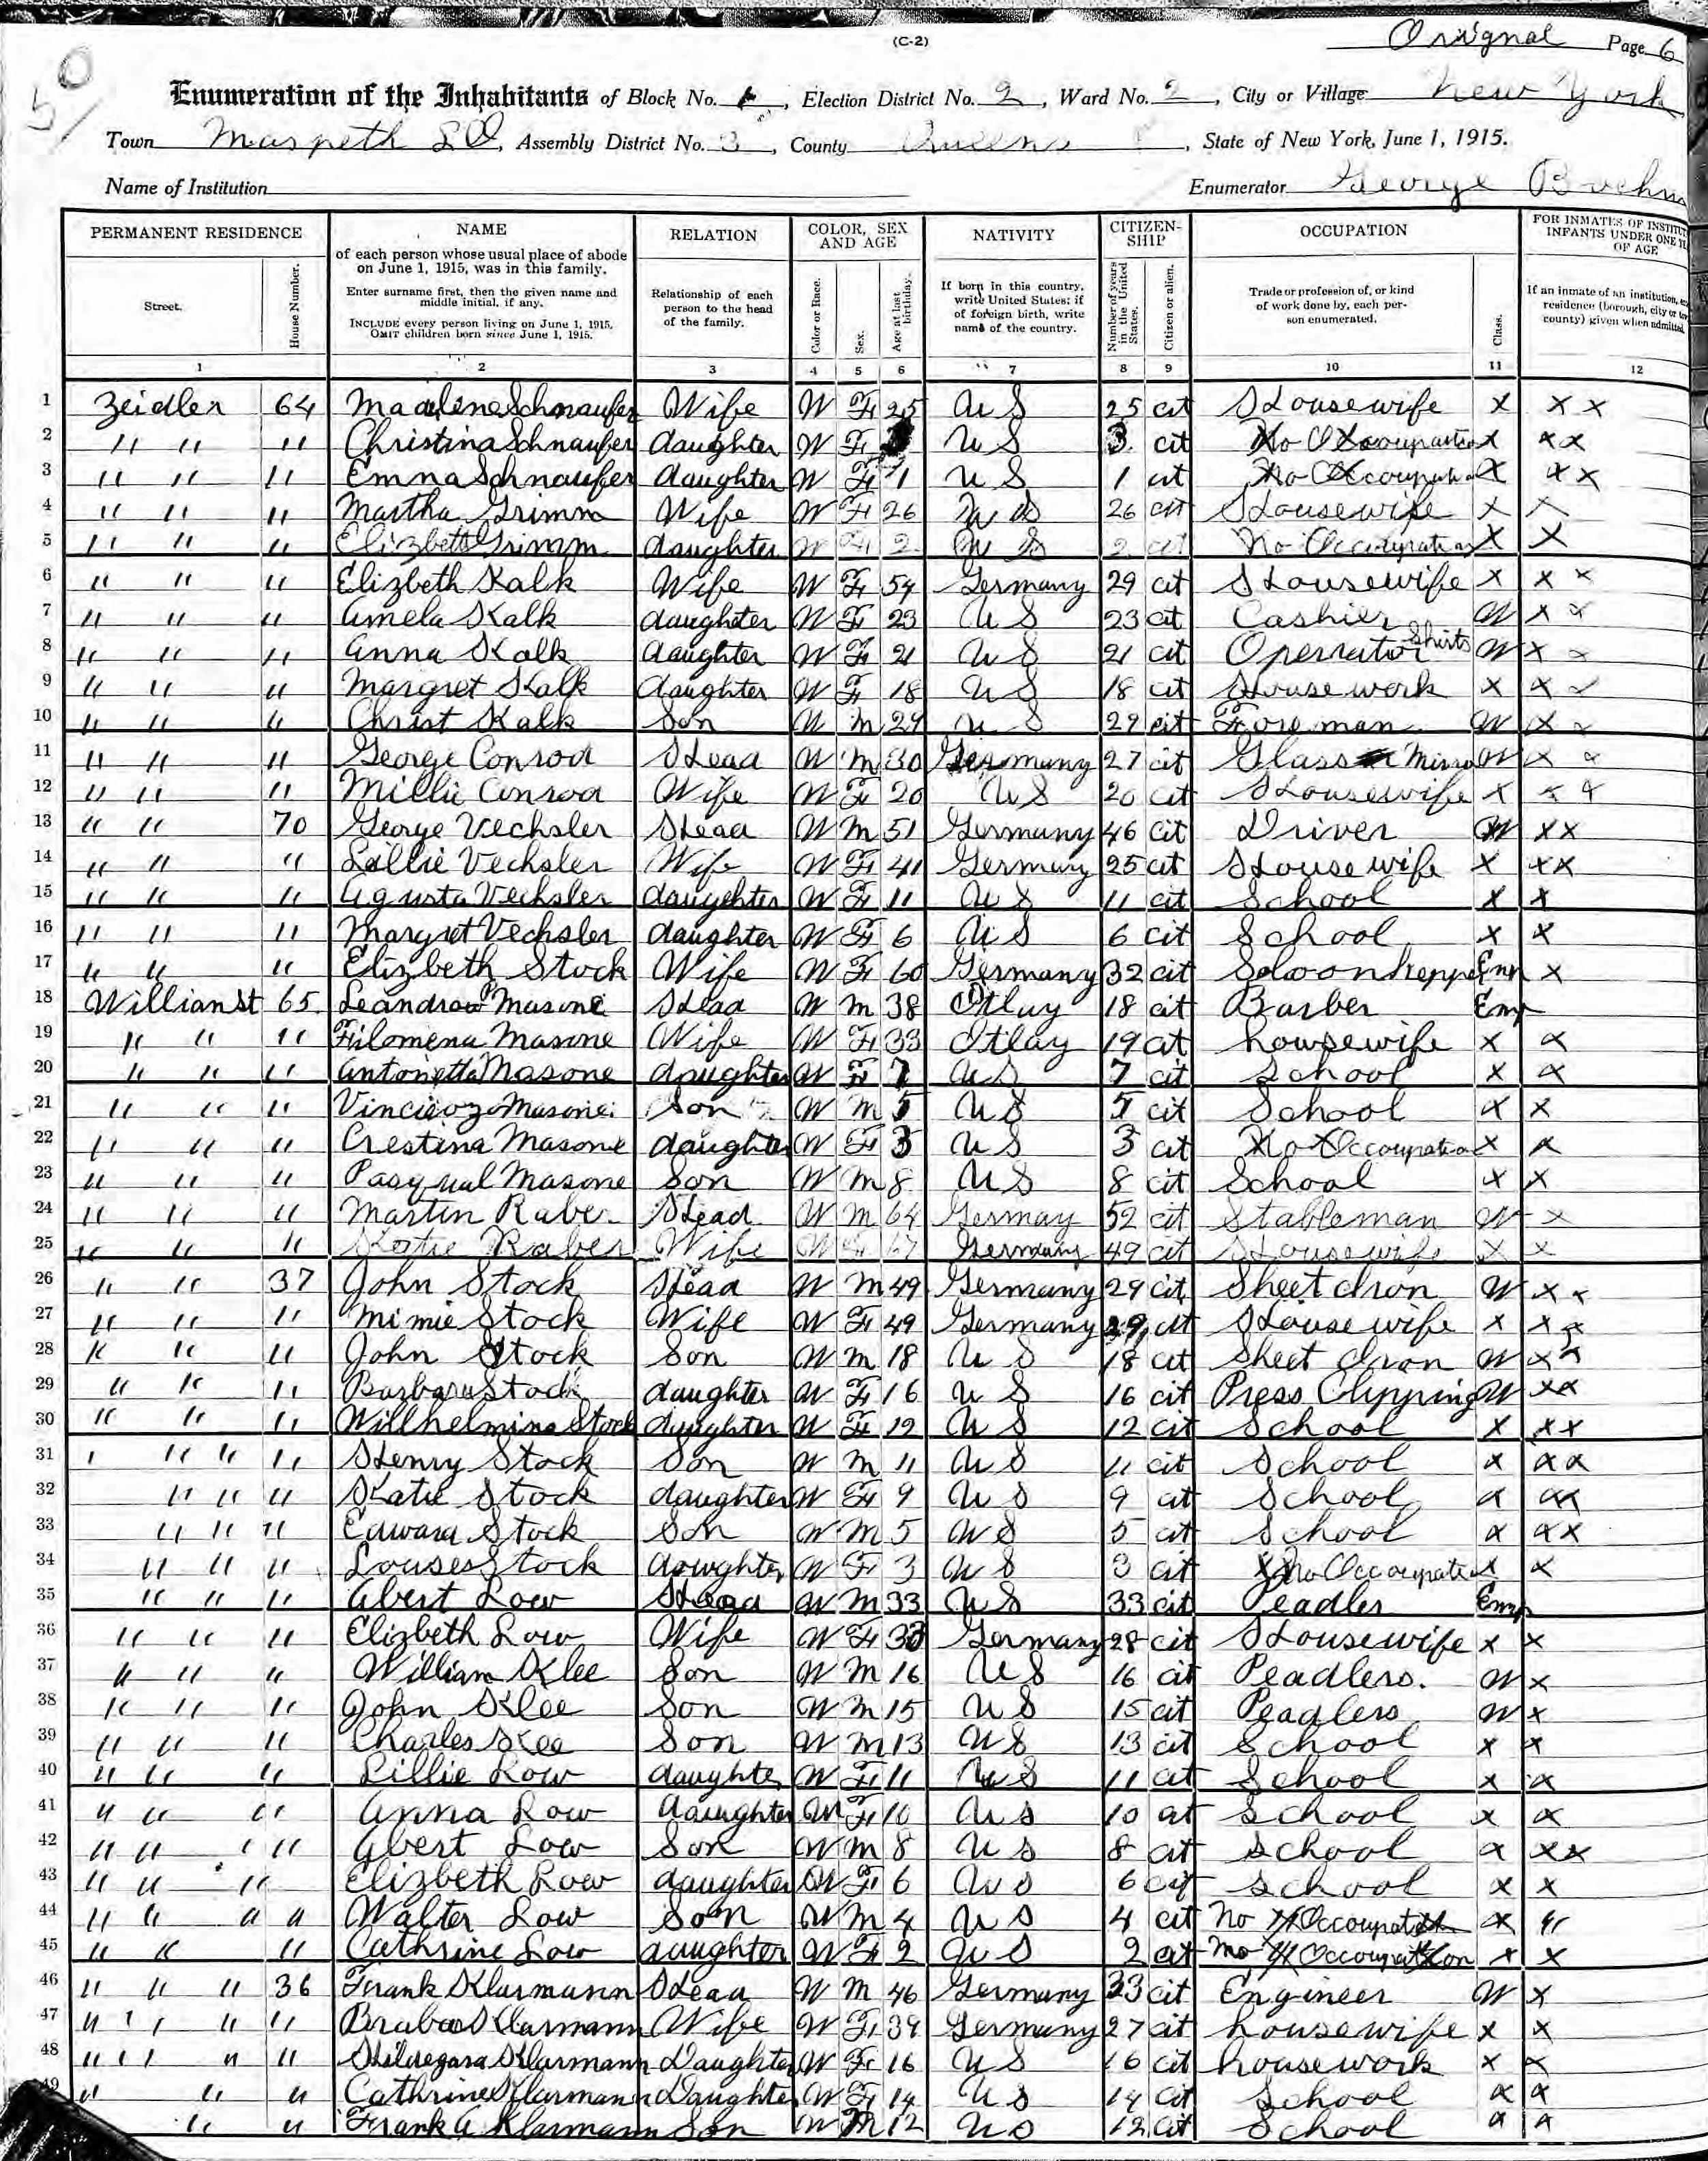 (C-2)
Orignal Page 6
50
Enumeration of the Inhabitants of Block No. , Election District No. 2, Ward No. 2, City or Village New York
Town Maspeth L I, Assembly District No. 3, County Queens, State of New York, June 1, 1915.
Name of Institution
Enumerator George Boehm
PERMANENT RESIDENCE NAME RELATION COLOR, SEX AND AGE NATIVITY CITIZENSHIP OCCUPATION FOR INMATES OF INSTITUT INFANTS UNDER ONE Y OF AGE
Street. House Number. of each person whose usual place of abode on June 1, 1915, was in this family. Enter surname first, then the given name and middle initial, if any. INCLUDE every person living on June 1, 1915. OMIT children born since June 1, 1915. Relationship of each person to the head of the family. Color or Race. Sex. Age at last birthday. If born in this country, write United States; if of foreign birth, write name of the country. Number of years in the United States. Citizen or alien. Trade or profession of, or kind of work done by, each person enumerated. Class. If an inmate of an institution, residence (borough, city or county) given when admitted
1 2 3 4 5 6 7 8 9 10 11 12
1 Zeidler 64 Madeline Schnaufer Wife W F 25 U S 25 cit Housewife X X X
2 " " " Christina Schnaufer daughter W F U S 3 cit No Occoupation X X X
3 " " " Emma Schnaufer daughter W F 1 U S 1 cit No Occoupation X X X
4 " " " Martha Grimm Wife W F 26 U S 26 cit Housewife X X
5 " " " Elizbeth Grimm daughter W F 2 U S 2 cit No Occoupation X X
6 " " " Elizbeth Kalk Wife W F 54 Germany 29 cit Housewife X X X
7 " " " Amela Kalk daughter W F 23 U S 23 cit Cashier W X X
8 " " " Anna Kalk daughter W F 21 U S 21 cit Operrator Shirts W X X
9 " " " Margret Kalk daughter W F 18 U S 18 cit House work X X X
10 " " " Christ Kalk Son W M 29 U S 29 cit Fore man W X X
11 " " " George Conrod Head W M 30 Germany 27 cit Glass Mirro W X X
12 " " " Millie Conrod Wife W F 20 U S 20 cit Housewife X X X
13 " " 70 George Vechsler Head W M 51 Germany 46 cit Driver W X X
14 " " " Lillie Vechsler Wife W F 41 Germany 25 cit House wife X X X
15 " " " Agusta Vechsler daughter W F 11 U S 11 cit School X X
16 " " " Margret Vechsler daughter W F 6 U S 6 cit School X X
17 " " " Elizbeth Stock Wife W F 60 Germany 32 cit Emp X
18 Willian St 65 Masone Head W M 38 Itlay 18 cit Barber Emp
19 " " " Filomena Masone Wife W F 33 Itlay 19 cit housewife X X
20 " " " Antonetta Masone daughter W F 7 U S 7 cit School X X
21 " " " Masone Son W M 5 U S 5 cit School X X
22 " " " Crestina Masone daughter W F 3 U S 3 cit No Occoupation X X
23 " " " Pasqual Masone Son W M 8 U S 8 cit School X X
24 " " " Martin Raber Head W M 64 Germay 52 cit Stableman W X
25 " " " Raber Wife W F 67 Germany 49 cit Housewife X X
26 " " 37 John Stock Head W M 49 Germany 29 cit Sheet Iron W X X
27 " " " Mimie Stock Wife W F 49 Germany 29 cit House wife X X X
28 " " " John Stock Son W M 18 U S 18 cit Sheet Iron W X X
29 " " " Barbara Stock daughter W F 16 U S 16 cit Press Clipping W X X
30 " " " Willhelmina Stock daughter W F 12 U S 12 cit School X X X
31 " " " Henry Stock Son W M 11 U S 11 cit School X X X
32 " " " Katie Stock daughter W F 9 U S 9 cit School X X X
33 " " " Edward Stock Son W M 5 U S 5 cit School X X X
34 " " " Louses Stock dowghter W F 3 U S 3 cit No Occoupation X X
35 " " " Abert Low Head W M 33 U S 33 cit Peadler Emp
36 " " " Elizbeth Low Wife W F 33 Germany 28 cit Housewife X X
37 " " " William Klee Son W M 16 U S 16 cit Peadlers. W X
38 " " " John Klee Son W M 15 U S 15 cit Peadlers W X
39 " " " Charles Klee Son W M 13 U S 13 cit School X X
40 " " " Lillie Low daughter W F 11 U S 11 cit School X X
41 " " " Anna Low daughter W F 10 U S 10 cit school X X
42 " " " Abert Low Son W M 8 U S 8 cit school X X X
43 " " " Elizbeth Low daughter W F 6 U S 6 cit school X X
44 " " " " Walter Low Son W M 4 U S 4 cit No Occoupation X "
45 " " " Cathrine Low daughter W F 2 U S 2 cit No Occoupation X X
46 " " " 36 Frank Klarmann Head W M 46 Germany 33 cit Engineer W X
47 " " " " Klarmann Wife W F 39 Germany 27 cit housewife X X
48 " " " " Klarmann Daughter W F 16 U S 16 cit housework X X
49 " " " Cathrine Klarmann Daughter W F 14 U S 14 cit School X X
" " Frank A Klarmann Son W M 12 U S 12 cit School X X